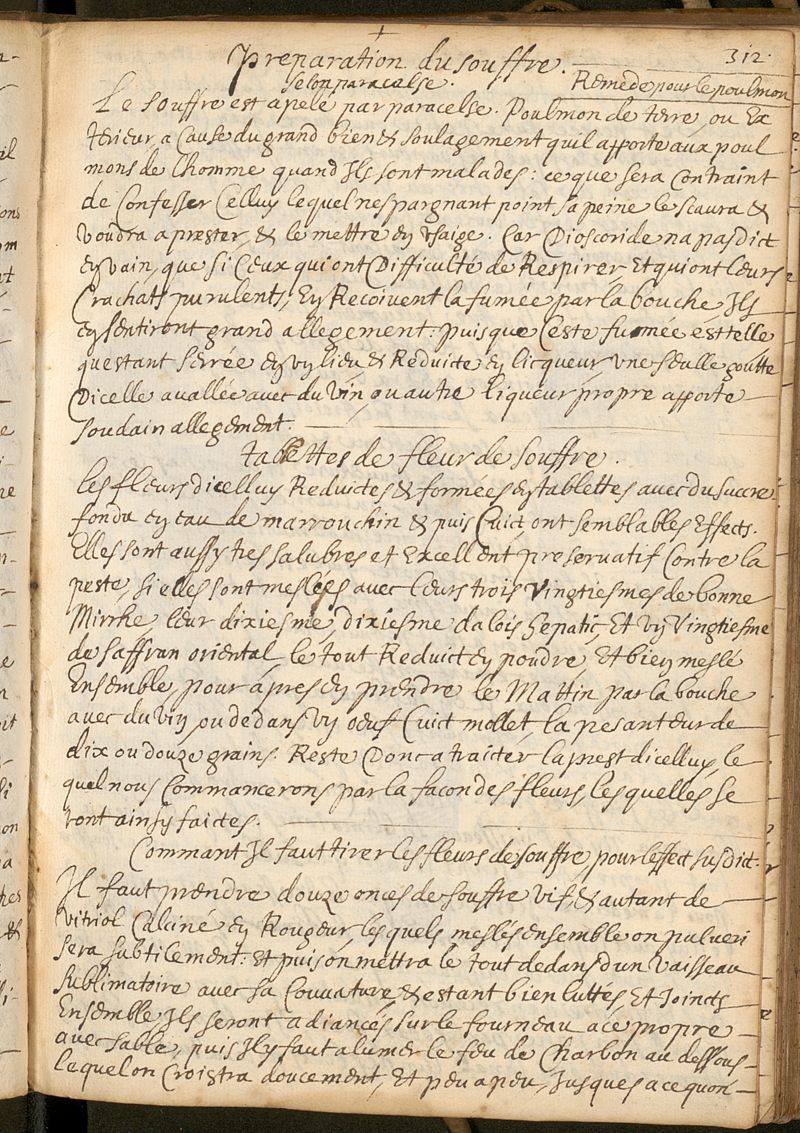 312.
Preparation du souffre.
selon paracelse.
Remede pour le poulmon
Le souffre est apelé par paracelse. Poulmon de terre, ou Ex
terieur a Cause du grand bien & soulagement quil apporte aux poul
mons de lhomme quand Ils sont malades: ce que sera Contraint
de Confesser Celluy lequel nespargnant point sa peine le scaura &
voudra aprester, & le mettre en Usaige. Car Dioscoride na pas dict
en vain, que si Ceux qui ont Difficulté de Respirer, Et qui ont leurs
Crachats purulents, En Recoivent la fumée par la bouche, Ils
en sentiront grand allegement: puisque Ceste fumée est telle
questant serrée en un lieu & Reduicte en licqueur une seulle goutte
Dicelle avallée avec du vin, ou autre liqueur propre apporte
soudain allegement.
tablettes de fleur de souffre.
Les fleurs dicelluy Reduictes & formées en tablettes avec du succre
fondu en eau de marrouchin & puis Cuict, ont semblables Effects.
Elles sont aussy tres salubres et Excellent preservatif Contre la
peste, si elles sont meslées avec leurs trois vingtiesmes de bonne
Mirrhe, leur dixiesme, dixiesme dalois hepatic, Et un Vingtiesme
de saffran oriental, le tout Reduict en poudre, Et bien meslé
Ensemble, pour apres en prendre le Mattin par la bouche
avec du vin, ou dedans un oeuf Cuict mollet la pesanteur de
dix ou douze grains. Reste Donc a traicter la prest dicelluy, le
quel nous Commancerons par la facon des fleurs, lesquelles se
ront ainsy faictes.
Commant Il faut tirer les fleurs de souffre, pour leffect susdict.
Il faut prendre douze onces de souffre vif, & autant de
vitriol Calciné en Rougeur, lesquels meslés ensemble on pulveri
sera subtilement: et puis on mettra le tout dedans dun vaisseau
sublimatoire avec sa Couvature, & estant bien luttés Et Joincts
Ensemble Ils seront adiancés sur le fourneau a ce propre
avec sable, puis Il y faut alumer le feu de Charbon au dessous
lequel on Croistra doucement, Et peu a peu, Jusques a ce quon